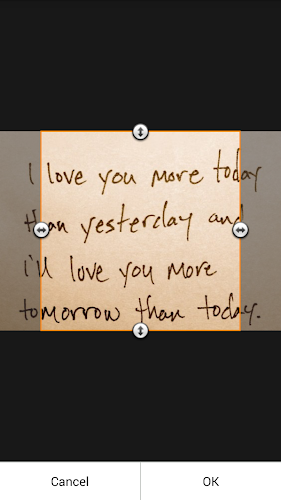 I love you more today
than yesterday and
i'll love you more
tomorrow than today.
Cancel
OK